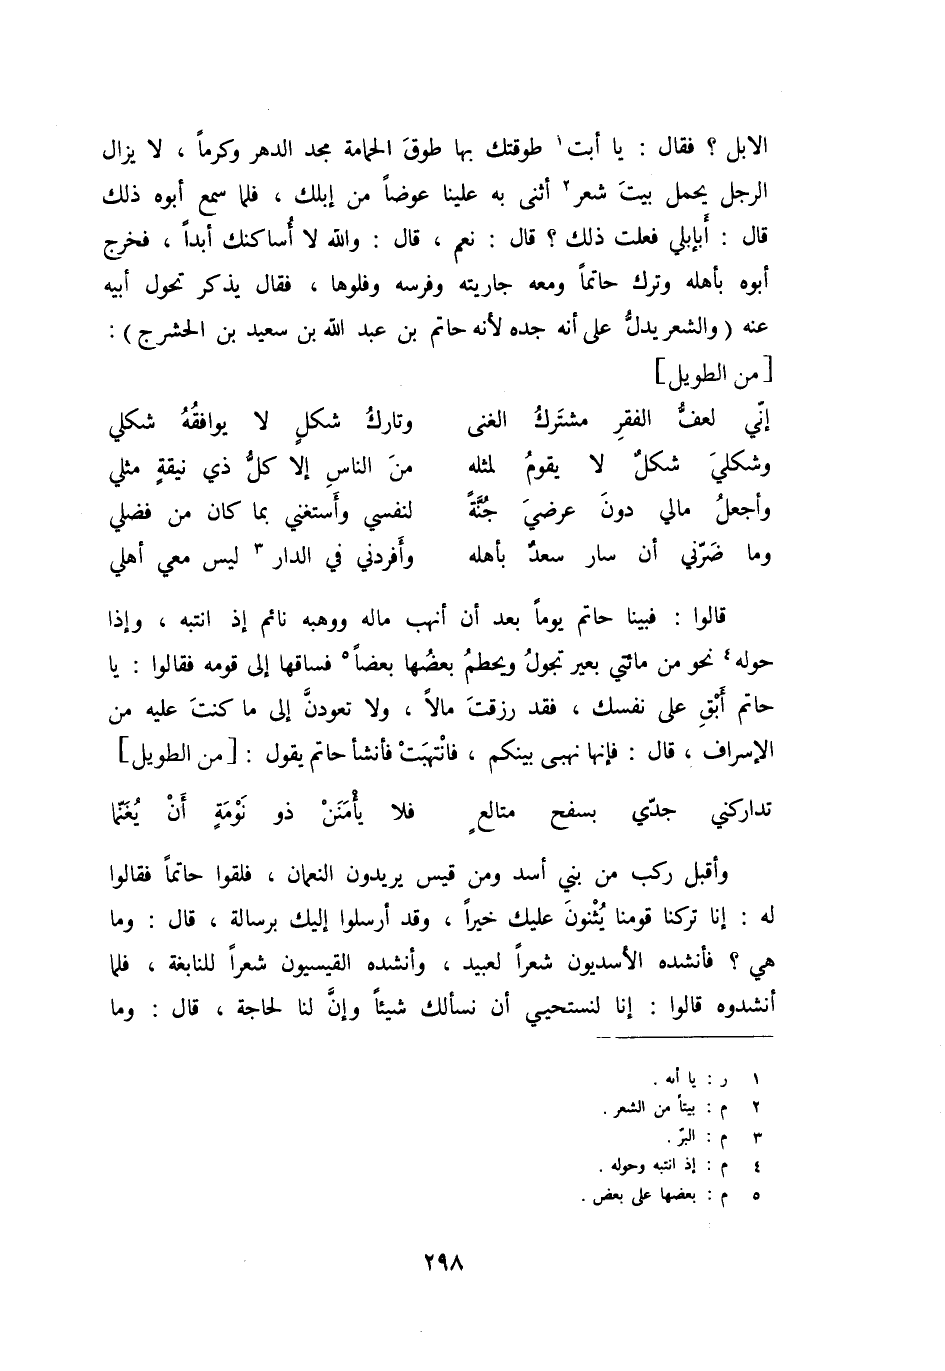 الابل ؟ فقال : يا أبت١ طوقتك بها طوقَ الحمامة مجد الدهر وكرماً ، لا يزال
الرجل يحمل بيتَ شعر٢ أثنى به علينا عوضاً من إبلك ، فلما سمع أبوه ذلك
قال : أَبإبلي فعلت ذلك ؟ قال : نعم ، قال : والله لا أُساكنك أبداً ، فخرج
أبوه بأهله وترك حاتماً ومعه جاريته وفرسه وفلوها ، فقال يذكر تحول أبيه
عنه ( والشعر يدلُّ على أنه جده لأنه حاتم بن عبد الله بن سعيد بن الحشرج ) :
[ من الطويل ]
إنّي لعفُّ الفقرِ مشتَركُ الغنى وتاركُ شكلٍ لا يوافقُهُ شكلي
وشكليَ شكلٌ لا يقومُ لمثله منَ الناسِ إلا كلُّ ذي نيقةٍ مثلي
وأجعلُ مالي دونَ عرضيَ جُنَّةً لنفسي وأَستغني بما كان من فضلي
وما ضَرّني أن سار سعدٌ بأهله وأَفردني في الدار ٣ ليس معي أهلي
قالوا : فبينا حاتم يوماً بعد أن أنهب ماله ووهبه نائم إذ انتبه ، وإذا
حوله٤ نحو من مائتي بعير تجولُ ويحطمُ بعضُها بعضاً٥ فساقها إلى قومه فقالوا : يا
حاتم أَبْقِ على نفسك ، فقد رزقتَ مالاً ، ولا تعودنَّ إلى ما كنتَ عليه من
الإسراف ، قال : فإنها نهبى بينكم ، فانْتهبَتْ فأنشأ حاتم يقول : [ من الطويل ]
تداركني جدّي بسفح متالعٍ فلا يأْمَنَنْ ذو نَوْمَةٍ أَنْ يُغَنّما
وأقبل ركب من بني أسد ومن قيس يريدون النعمان ، فلقوا حاتماً فقالوا
له : إنا تركنا قومنا يُثْنونَ عليك خيراً ، وقد أرسلوا إليك برسالة ، قال : وما
هي ؟ فأنشده الأسديون شعراً لعبيد ، وأنشده القيسيون شعراً للنابغة ، فلما
أنشدوه قالوا : إنا لنستحيي أن نسألك شيئاً وإنَّ لنا لحاجة ، قال : وما
١ ر : يا أبه .
٢ م : بيتاً من الشعر .
٣ م : البرّ .
٤ م : إذ انتبه وحوله .
٥ م : بعضها على بعض .
٢٩٨